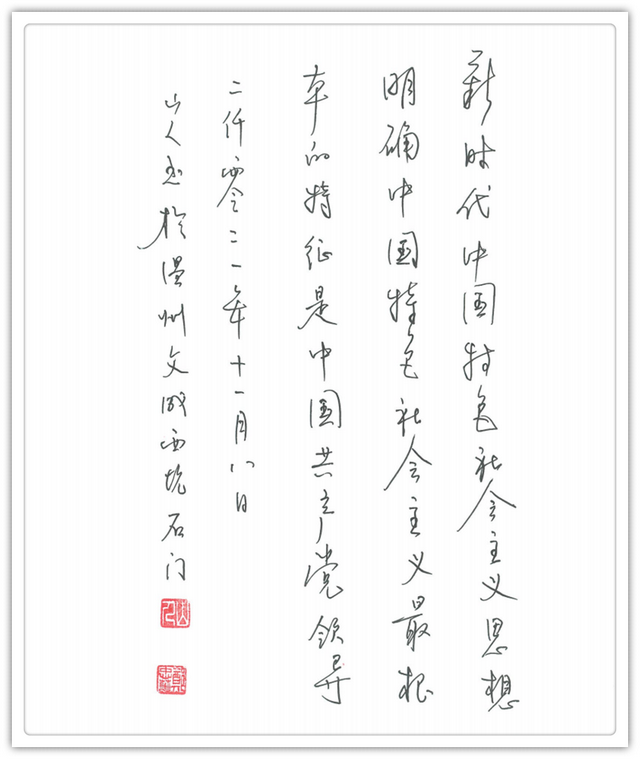 新时代中国特色社会主义思想
明确中国特色社会主义最根
本的特征是中国共产党领导
二仟零二一年十一月八日
山人书於温州文成西坑石门